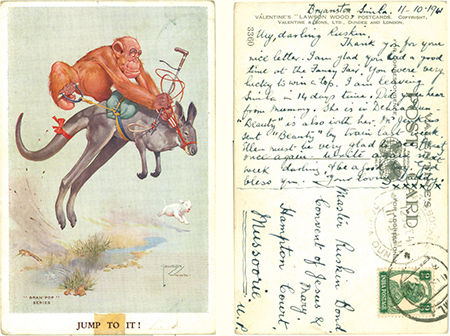 LAWSON
WOOD
"GRAN'POP"
SERIES
JUMP TO IT!
Bryanston Simla. 11-10-1941
VALENTINE'S "LAWSON WOOD" POSTCARDS. COPYRIGHT.
VALENTINE & SONS, LTD., DUNDEE AND LONDON.
3360
My, darling Ruskin,
Thank you for your
nice letter. I am glad you had a good
time at the Fancy Fair. You were very
lucky to win a top. I am leaving
Simla in 14 days time. Did you hear
from mummy. She is in Dehra
"Beauty" is also with her.
sent "Beauty" by train last week
Ellen must be very glad to see
once again. Write again next
week darling. God
bless you. Your loving Daddy
xxxxxxxx
POST CARD
Master Ruskin Bond,
Convent of Jesus &
Mary,
Hampton Court,
Mussoorie.
U.P.
INDIA POSTAGE